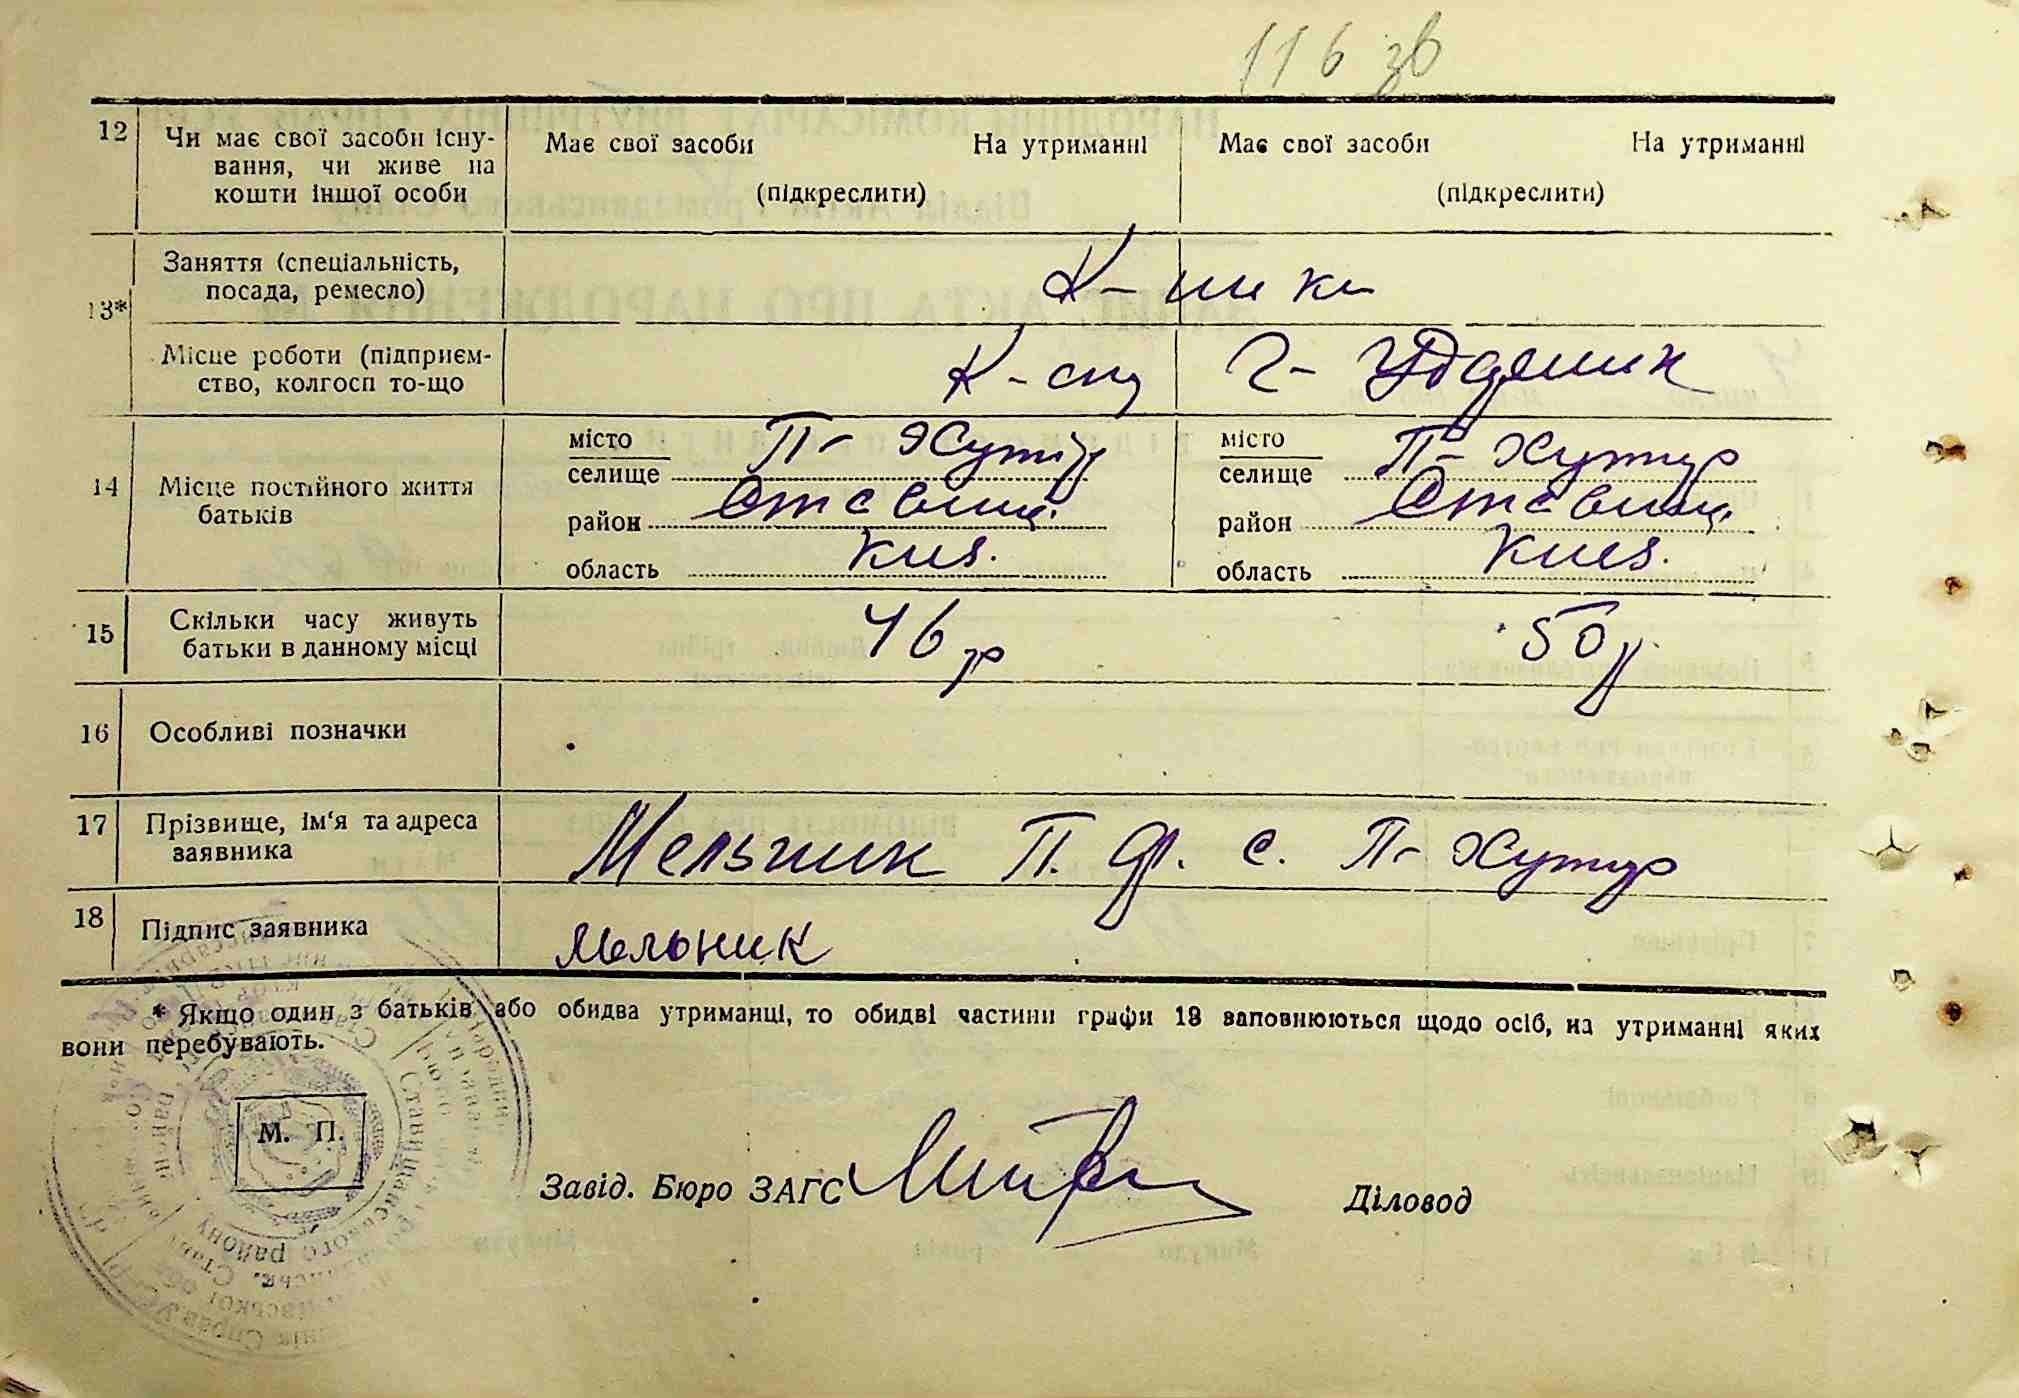 116 зв
12 Чи має свої засоби існу-
вання, чи живе на
кошти іншої особи
Має свої засоби На утриманні
(підкреслити)
Має свої засоби На утриманні
(підкреслити)
13* Заняття (спеціальність,
посада, ремесло)
К-ники
Місце роботи (підприєм-
ство, колгосп то-що
К-сп
14 Місце постійного життя
батьків
місто
селище П- Хутір
район Ставищ.
область Київ.
місто
селище П- Хутур
район Ставищ.
область Київ.
15 Скільки часу живуть
батьки в данному місці
46 р
50 р.
16 Особливі позначки
17 Прізвище, ім'я та адреса
заявника
Мельник П. Др. с. П- Хутур
18 Підпис заявника
Мельник
* Якщо один з батьків або обидва утриманці, то обидві частини графи 13 заповнюються щодо осіб, на утриманні яких
вони перебувають.
М. П.
Завід. Бюро ЗАГС
Діловод